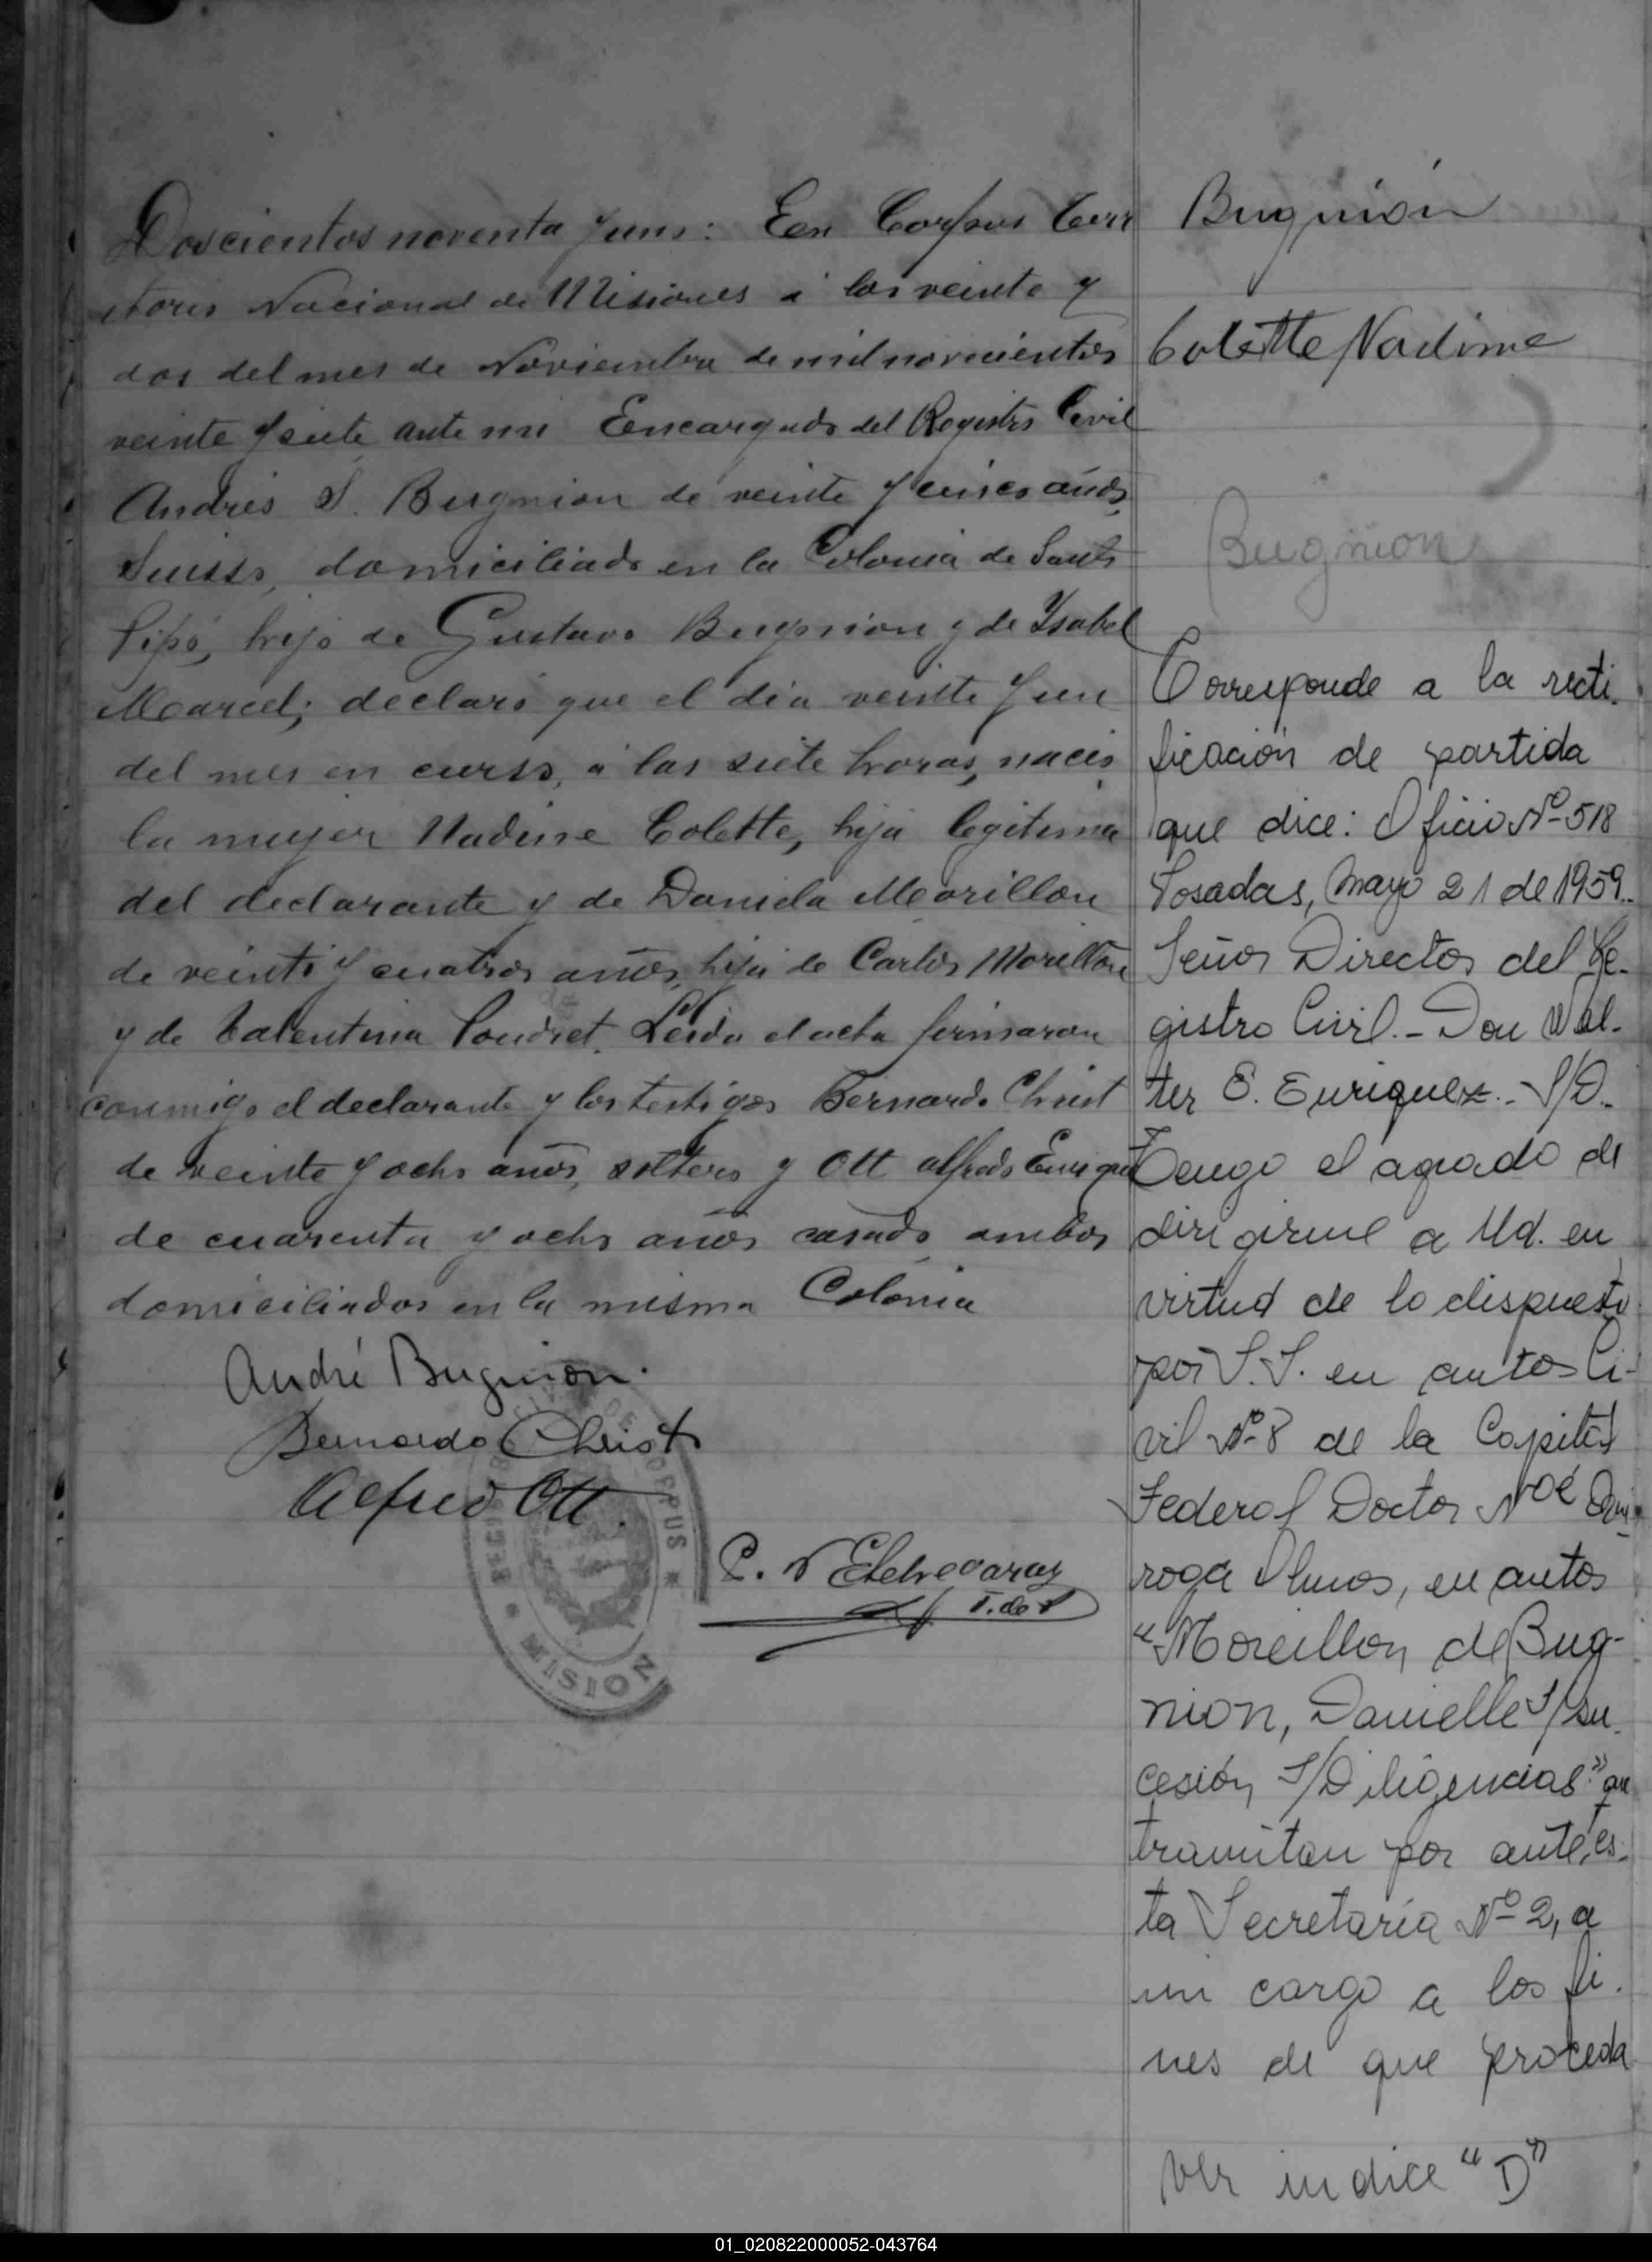 Doscientos noventa y uno: En Corpus Terr
itorio Nacional de Misiones á los veinte y
dos del mes de Noviembre de mil novecientos
veinte y siete ante mi Encargado del Registro Civil
Andrés S. Bugnion de veinte y cinco años,
Suisso, domiciliado en la Colonia de Santo
Pipó, hijo de Gustavo Bugnion y de Ysabel
Marcel; declaró que el dia veinte y un
del mes en curso, á las siete horas, nació
la mujer Nadine Colette, hija legitima
del declarante y de Daniela Morillon
de veinti y cuatros años, hija de Carlos Morillon
y de Valentina Poudret. Leida el acta firmaron
conmigo el declarante y los testigos Bernardo Christ
de veinte y ocho años, soltero y Ott Alfredo Enrique
de cuarenta y ocho años casado ambos
domiciliados en la misma Colonia
André Bugnion.
Bernardo Christ
Alfredo Ott.
P. N Etchegaray
REGISTRO CIVIL DE CORPUS * MISION
Bugnión
Colette Nadine
Bugnion
Corresponde a la recti-
ficación de partida
que dice: Oficio Nº 518
Posadas, Mayo 21 de 1959.-
Señor Director del Re-
gistro Civil.- Don Wal-
ter E. Enriquez.- S/D.-
Tengo el agrado de
dirigirme a Ud. en
virtud de lo dispuesto
por S.S. en autos Ci-
vil Nº 8 de la Capital
Federal Doctor Noé Qui-
roga Olmos, en autos
"Moreillon de Bug-
nion, Danielle S/su-
cesión S/Diligencias" que
tramitan por ante es-
ta Secretaría Nº 2, a
mi cargo a los fi-
nes de que proceda
Ver indice "D"
01_020822000052-043764